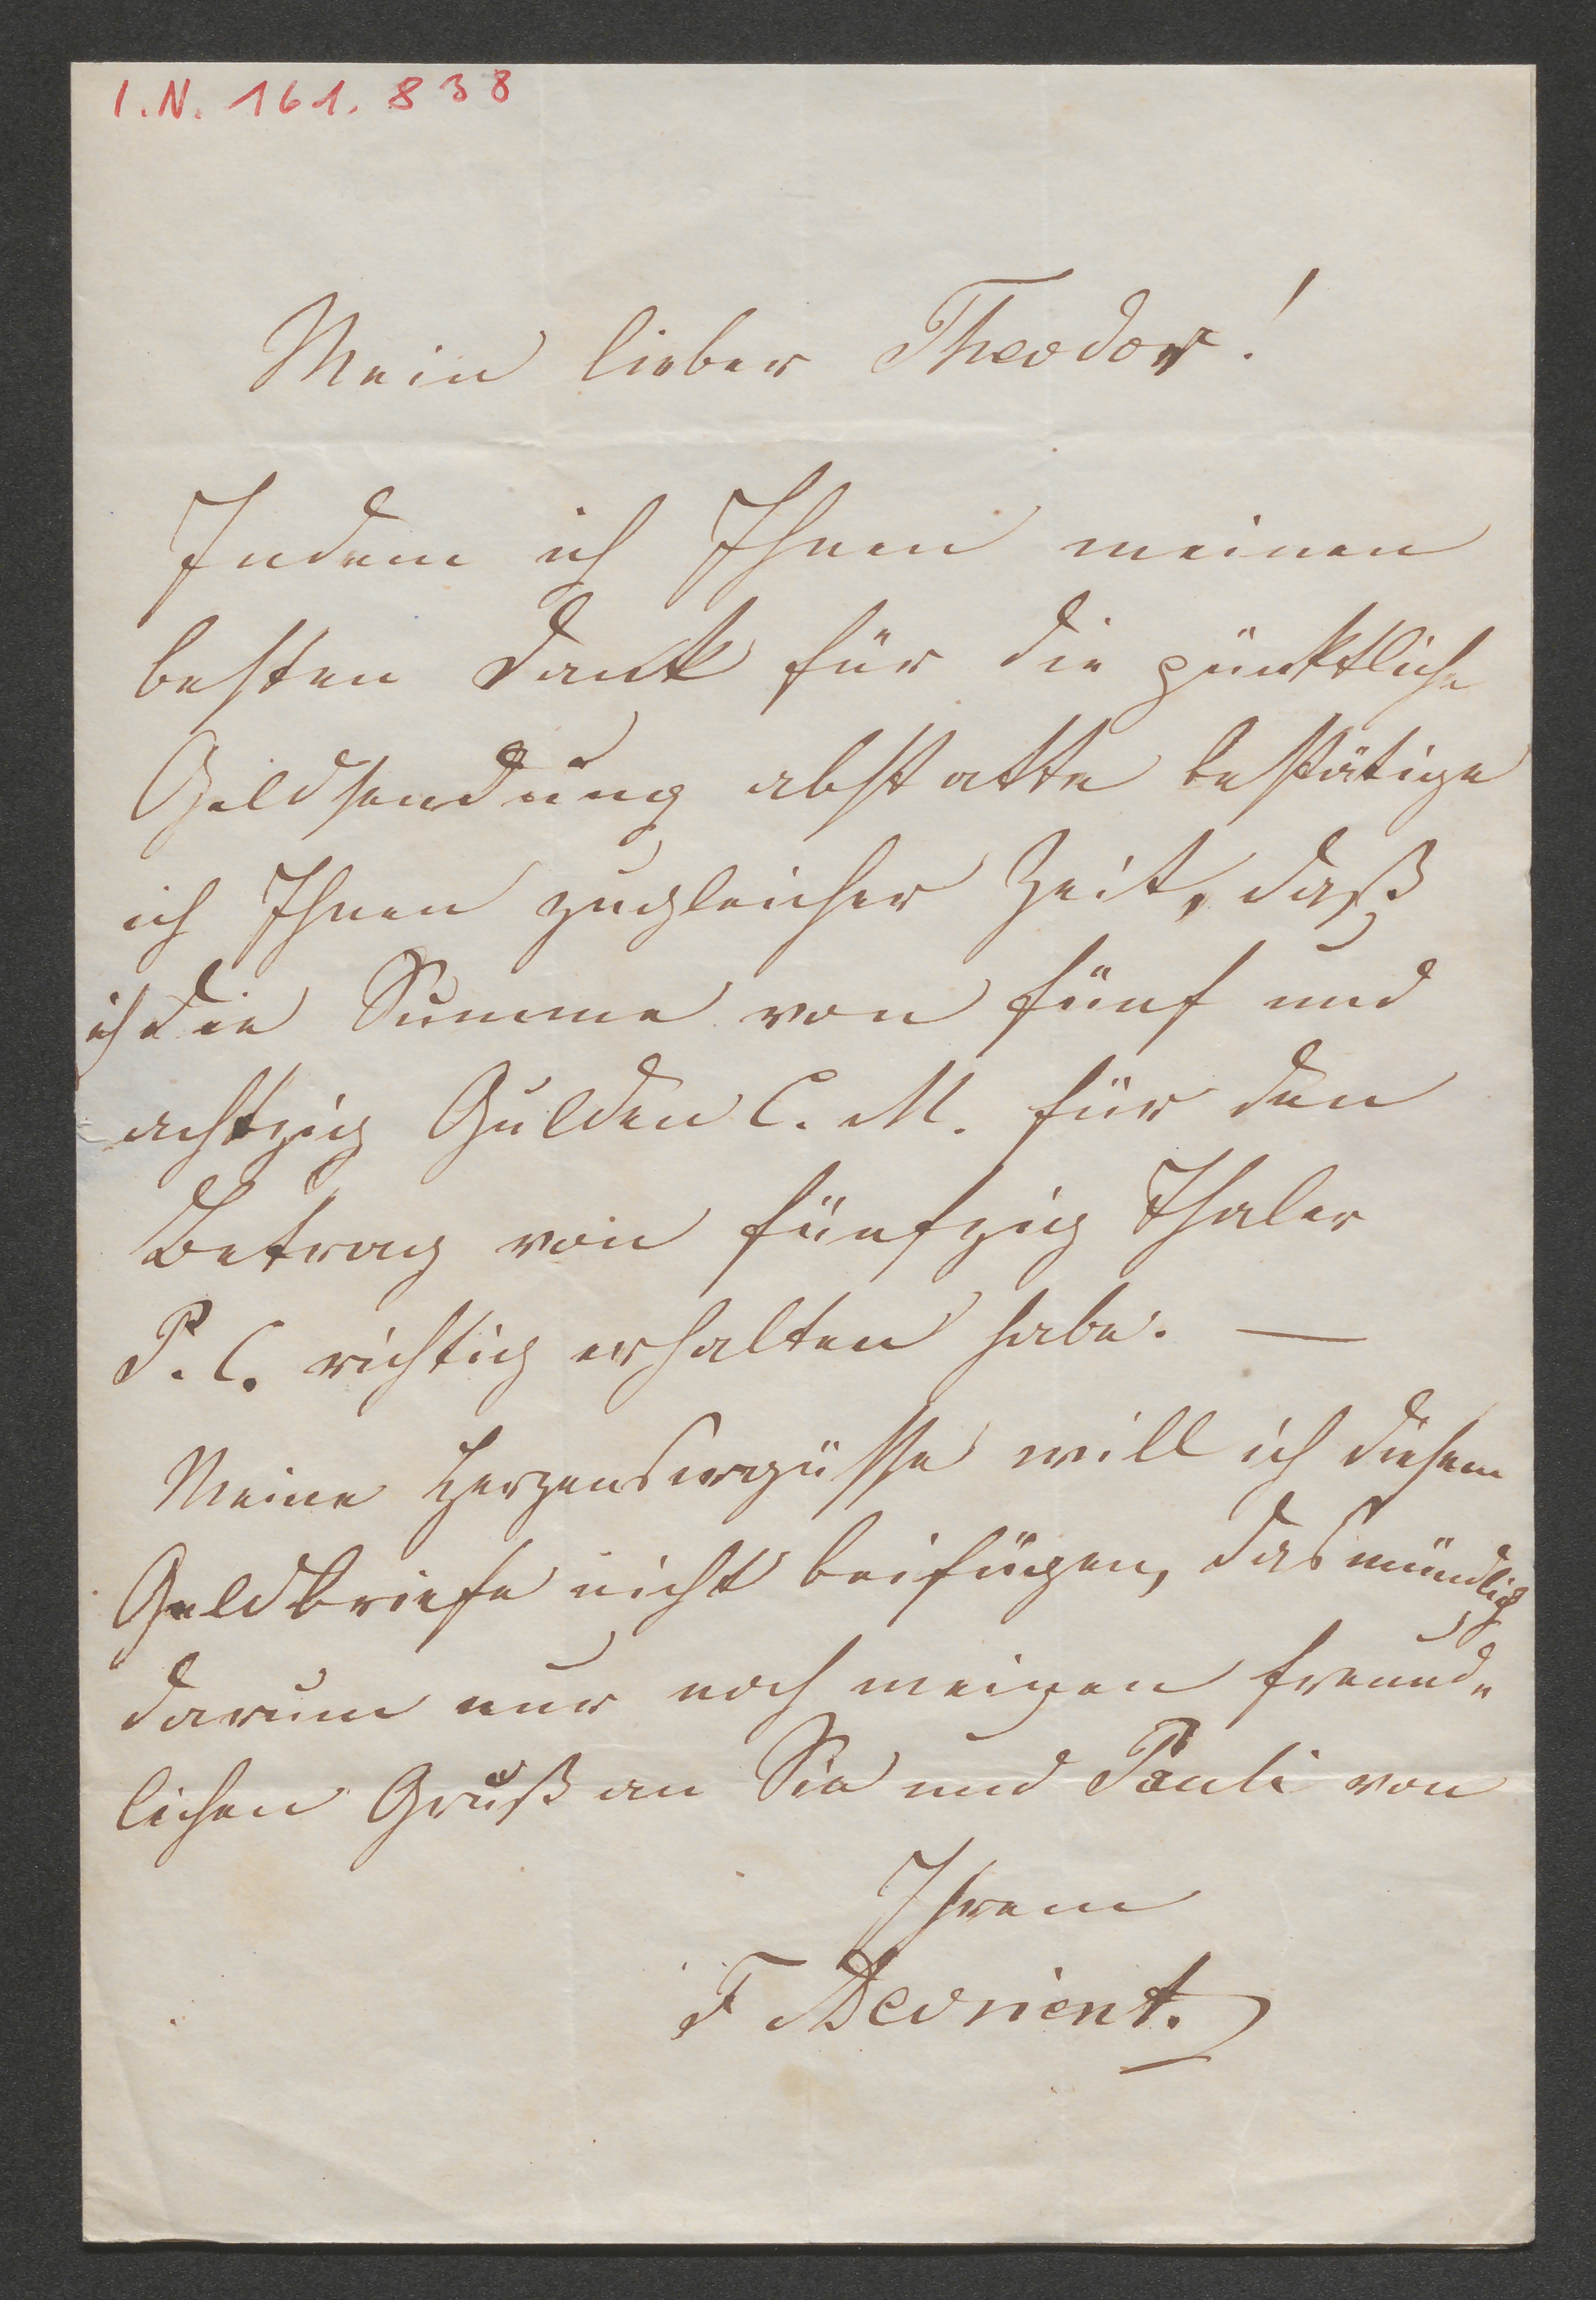 I.N. 161.838
Mein lieber Theodor!
Indem ich Ihnen meinen
besten Dank für die pünktliche
Geldsendung abstatte bestätige
ich Ihnen zugleicher Zeit, daß
ich die Summe von fünf und
achtzig Gulden C. M. für den
Betrag von fünfzig Thaler
P. C. richtig erhalten habe. —
Meine Herzensergüsse will ich diesem
Geldbriefe nicht beifügen, das mündlich
darum nur noch meinen freund„
lichen Gruß an Sie und Pauli von
Ihrem
F Devrient.